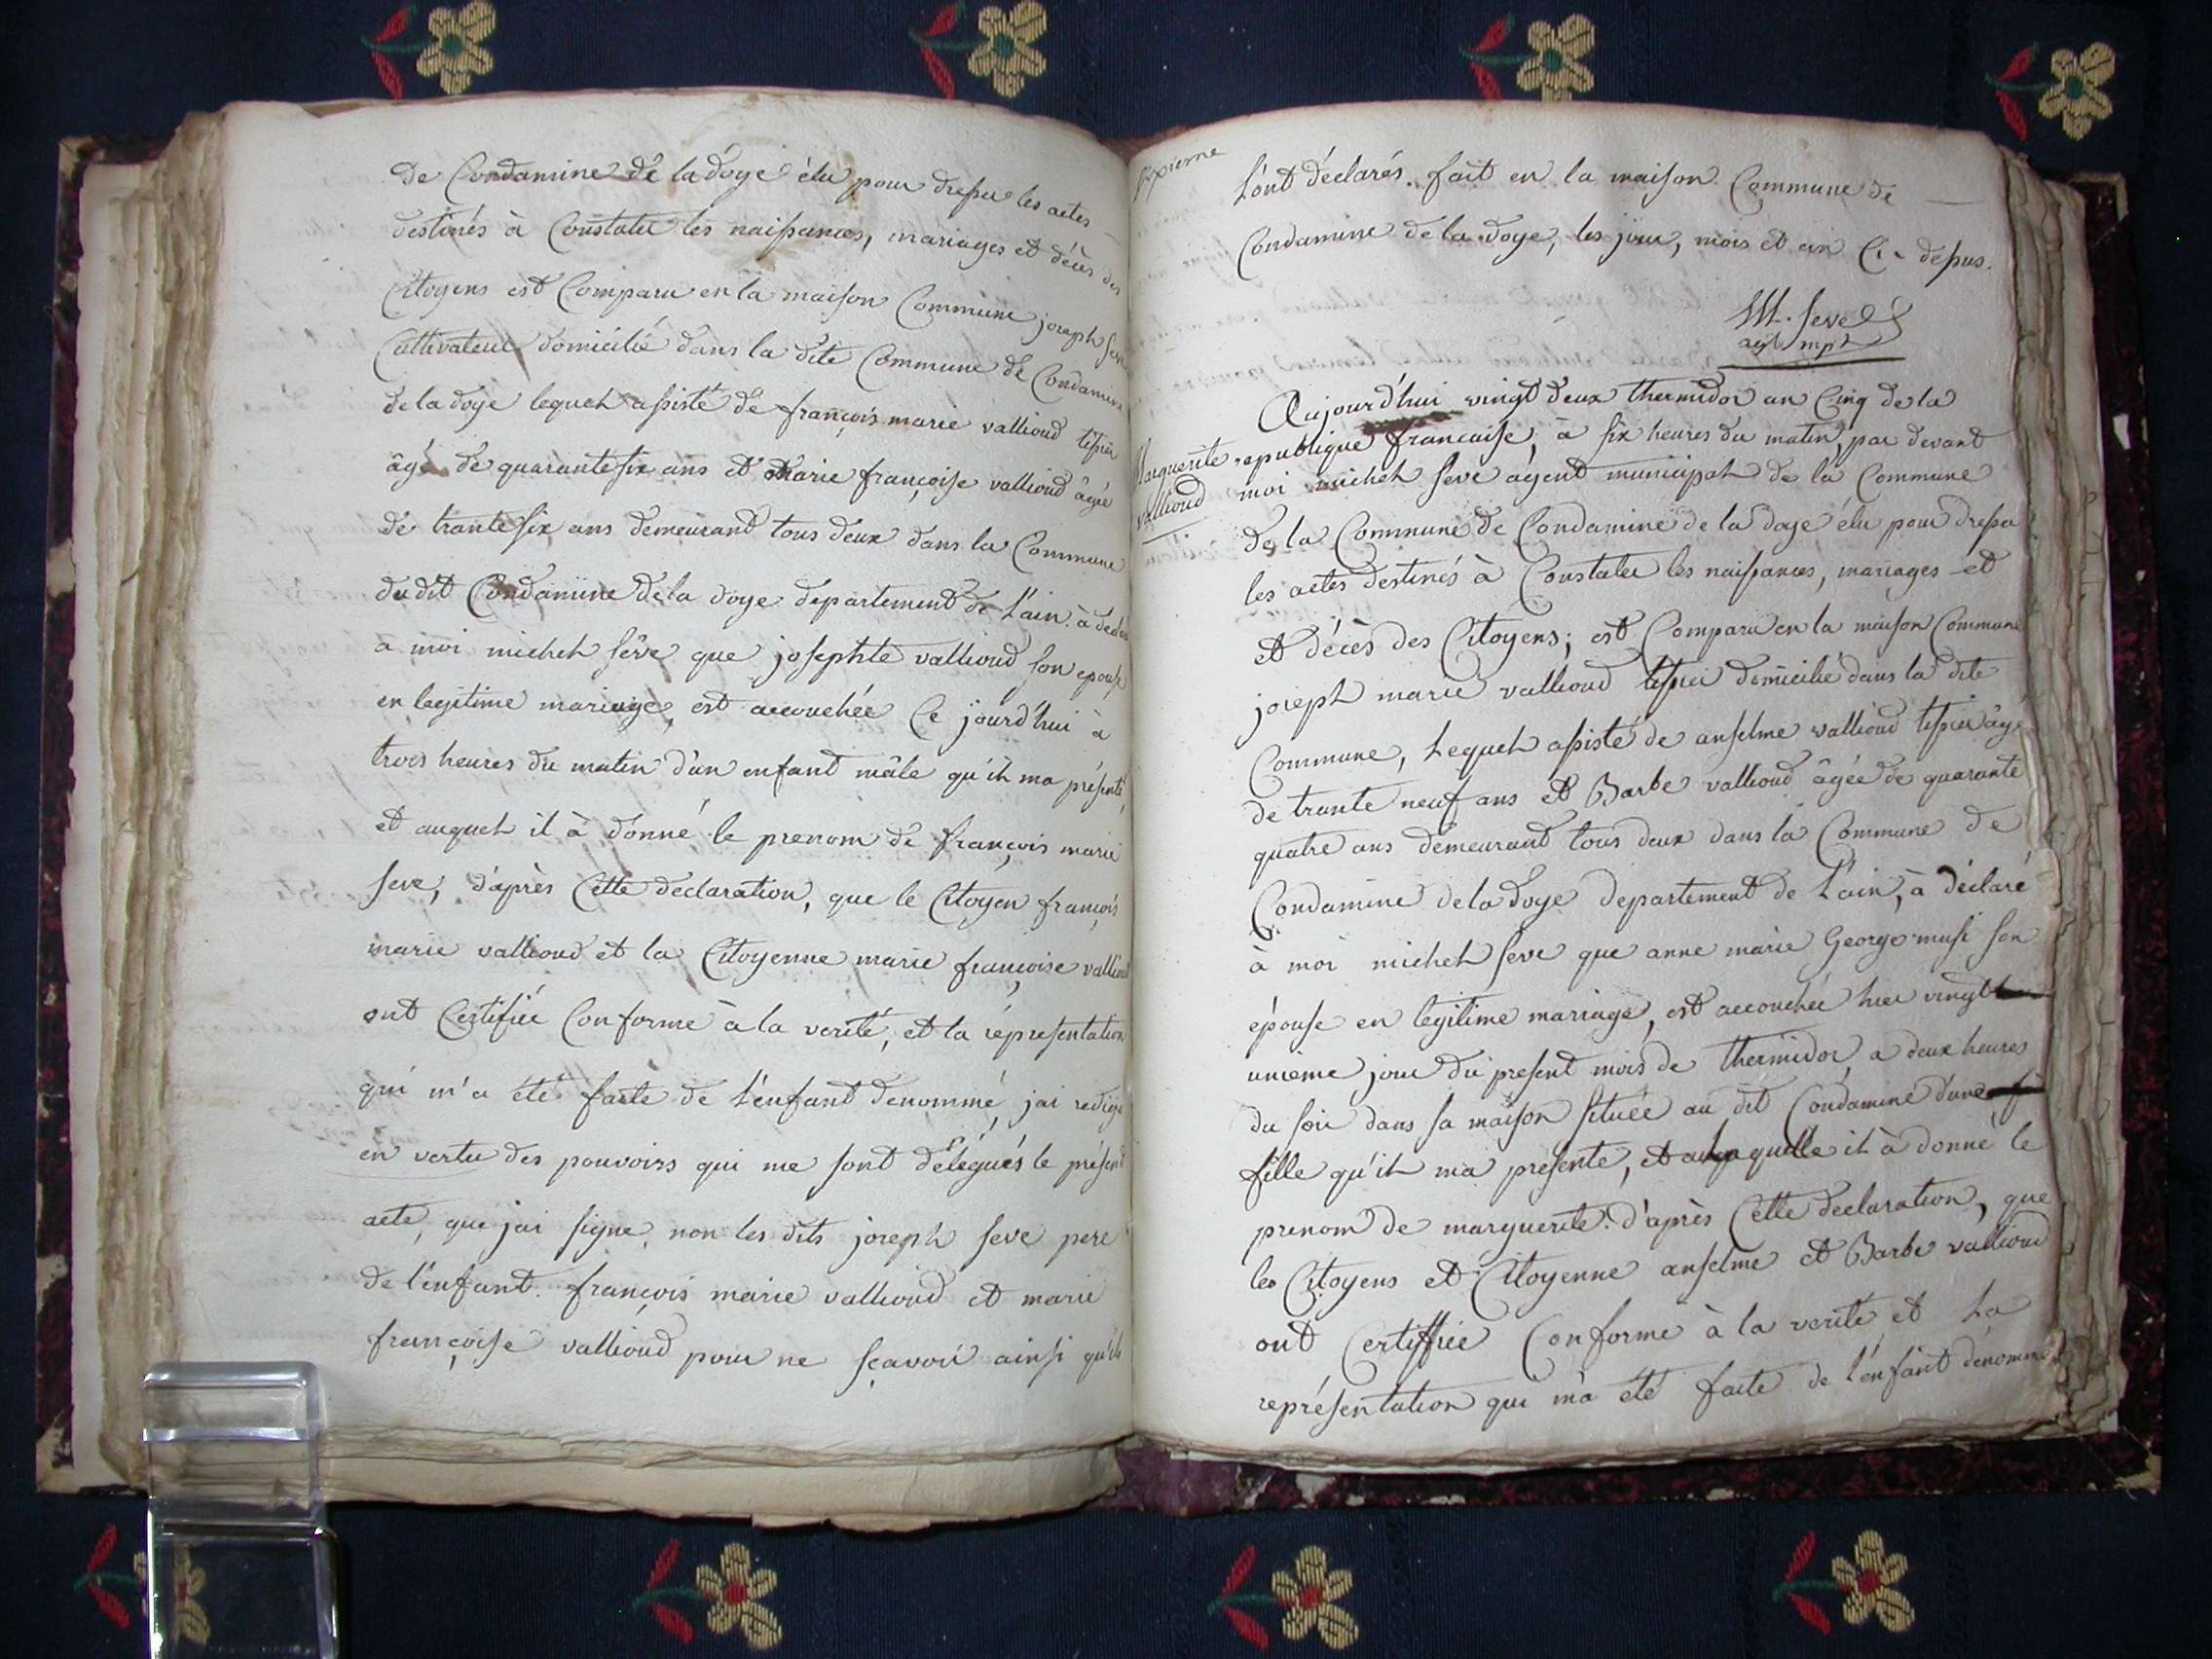 de Condamine de la doye élu pour dresser les actes
destinés à Constater les naissances, mariages et décès des
Citoyens est Comparu en la maison Commune joseph seve
Cultivateur domicilié dans la dite Commune de Condamine
de la doye lequel assisté de françois marie vallioud tissier
âgé de quarante six ans et Marie françoise vallioud âgée
de trante six ans demeurant tous deux dans la Commune
du dit Condamine de la doye departement de L'ain à declaré
à moi michel séve que josephte vallioud son epouse
en legitime mariage, est accouchée Ce jourd'hui à
trois heures du matin d'un enfant mâle qu'il ma présenté
et auquel il à donné le prenom de françois marie
seve, d'après Cette declaration, que le Citoyen françois
marie vallioud et la Citoyenne marie françoise vallioud
ont Certifiée Conforme à la verité, et la répresentation
qui m'a été faite de L'enfant denommé, jai redigé
en vertu des pouvoirs qui me sont délégués le présent
acte, que jai signe, non les dits joseph seve pere
de l'enfant. françois marie vallioud et marie
françoise vallioud pour ne sçavoir ainsi qu'ils
L'ont déclarés. fait en la maison Commune de
Condamine de la doye, les jour, mois et an Ci-dessus.
M. seve
agt mpl
Aujourd'hui vingt deux thermidor an Cinq de la
Marguerite
vallioud
republique francaise, à six heures du matin, par devant
moi michel seve agent municipal de la Commune
de la Commune de Condamine de la doye élu pour dresser
les actes destinés à Constater les naissances, mariages et
et décès des Citoyens; est Comparu en la maison Commune
joseph marie vallioud tissier domicilié dans la dite
Commune, Lequel assisté de anselme vallioud tissier âgé
de trante neuf ans et Barbe vallioud âgée de quarante
quatre ans demeurant tous deux dans la Commune de
Condamine de la doye departement de L'ain, à déclaré
à moi michel seve que anne marie George musi son
épouse en legitime mariage, est accouchée hier vingt
unieme jour du present mois de thermidor, a deux heures
du soir dans sa maison située au dit Condamine d'une
fille qu'il ma presente, et a laquelle il à donné le
prenom de marguerite. d'après Cette declaration, que
les Citoyens et Citoyenne anselme et Barbe vallioud
ont Certiffiée Conforme à la verité et La
représentation qui m'a été faite de L'enfant dénommé